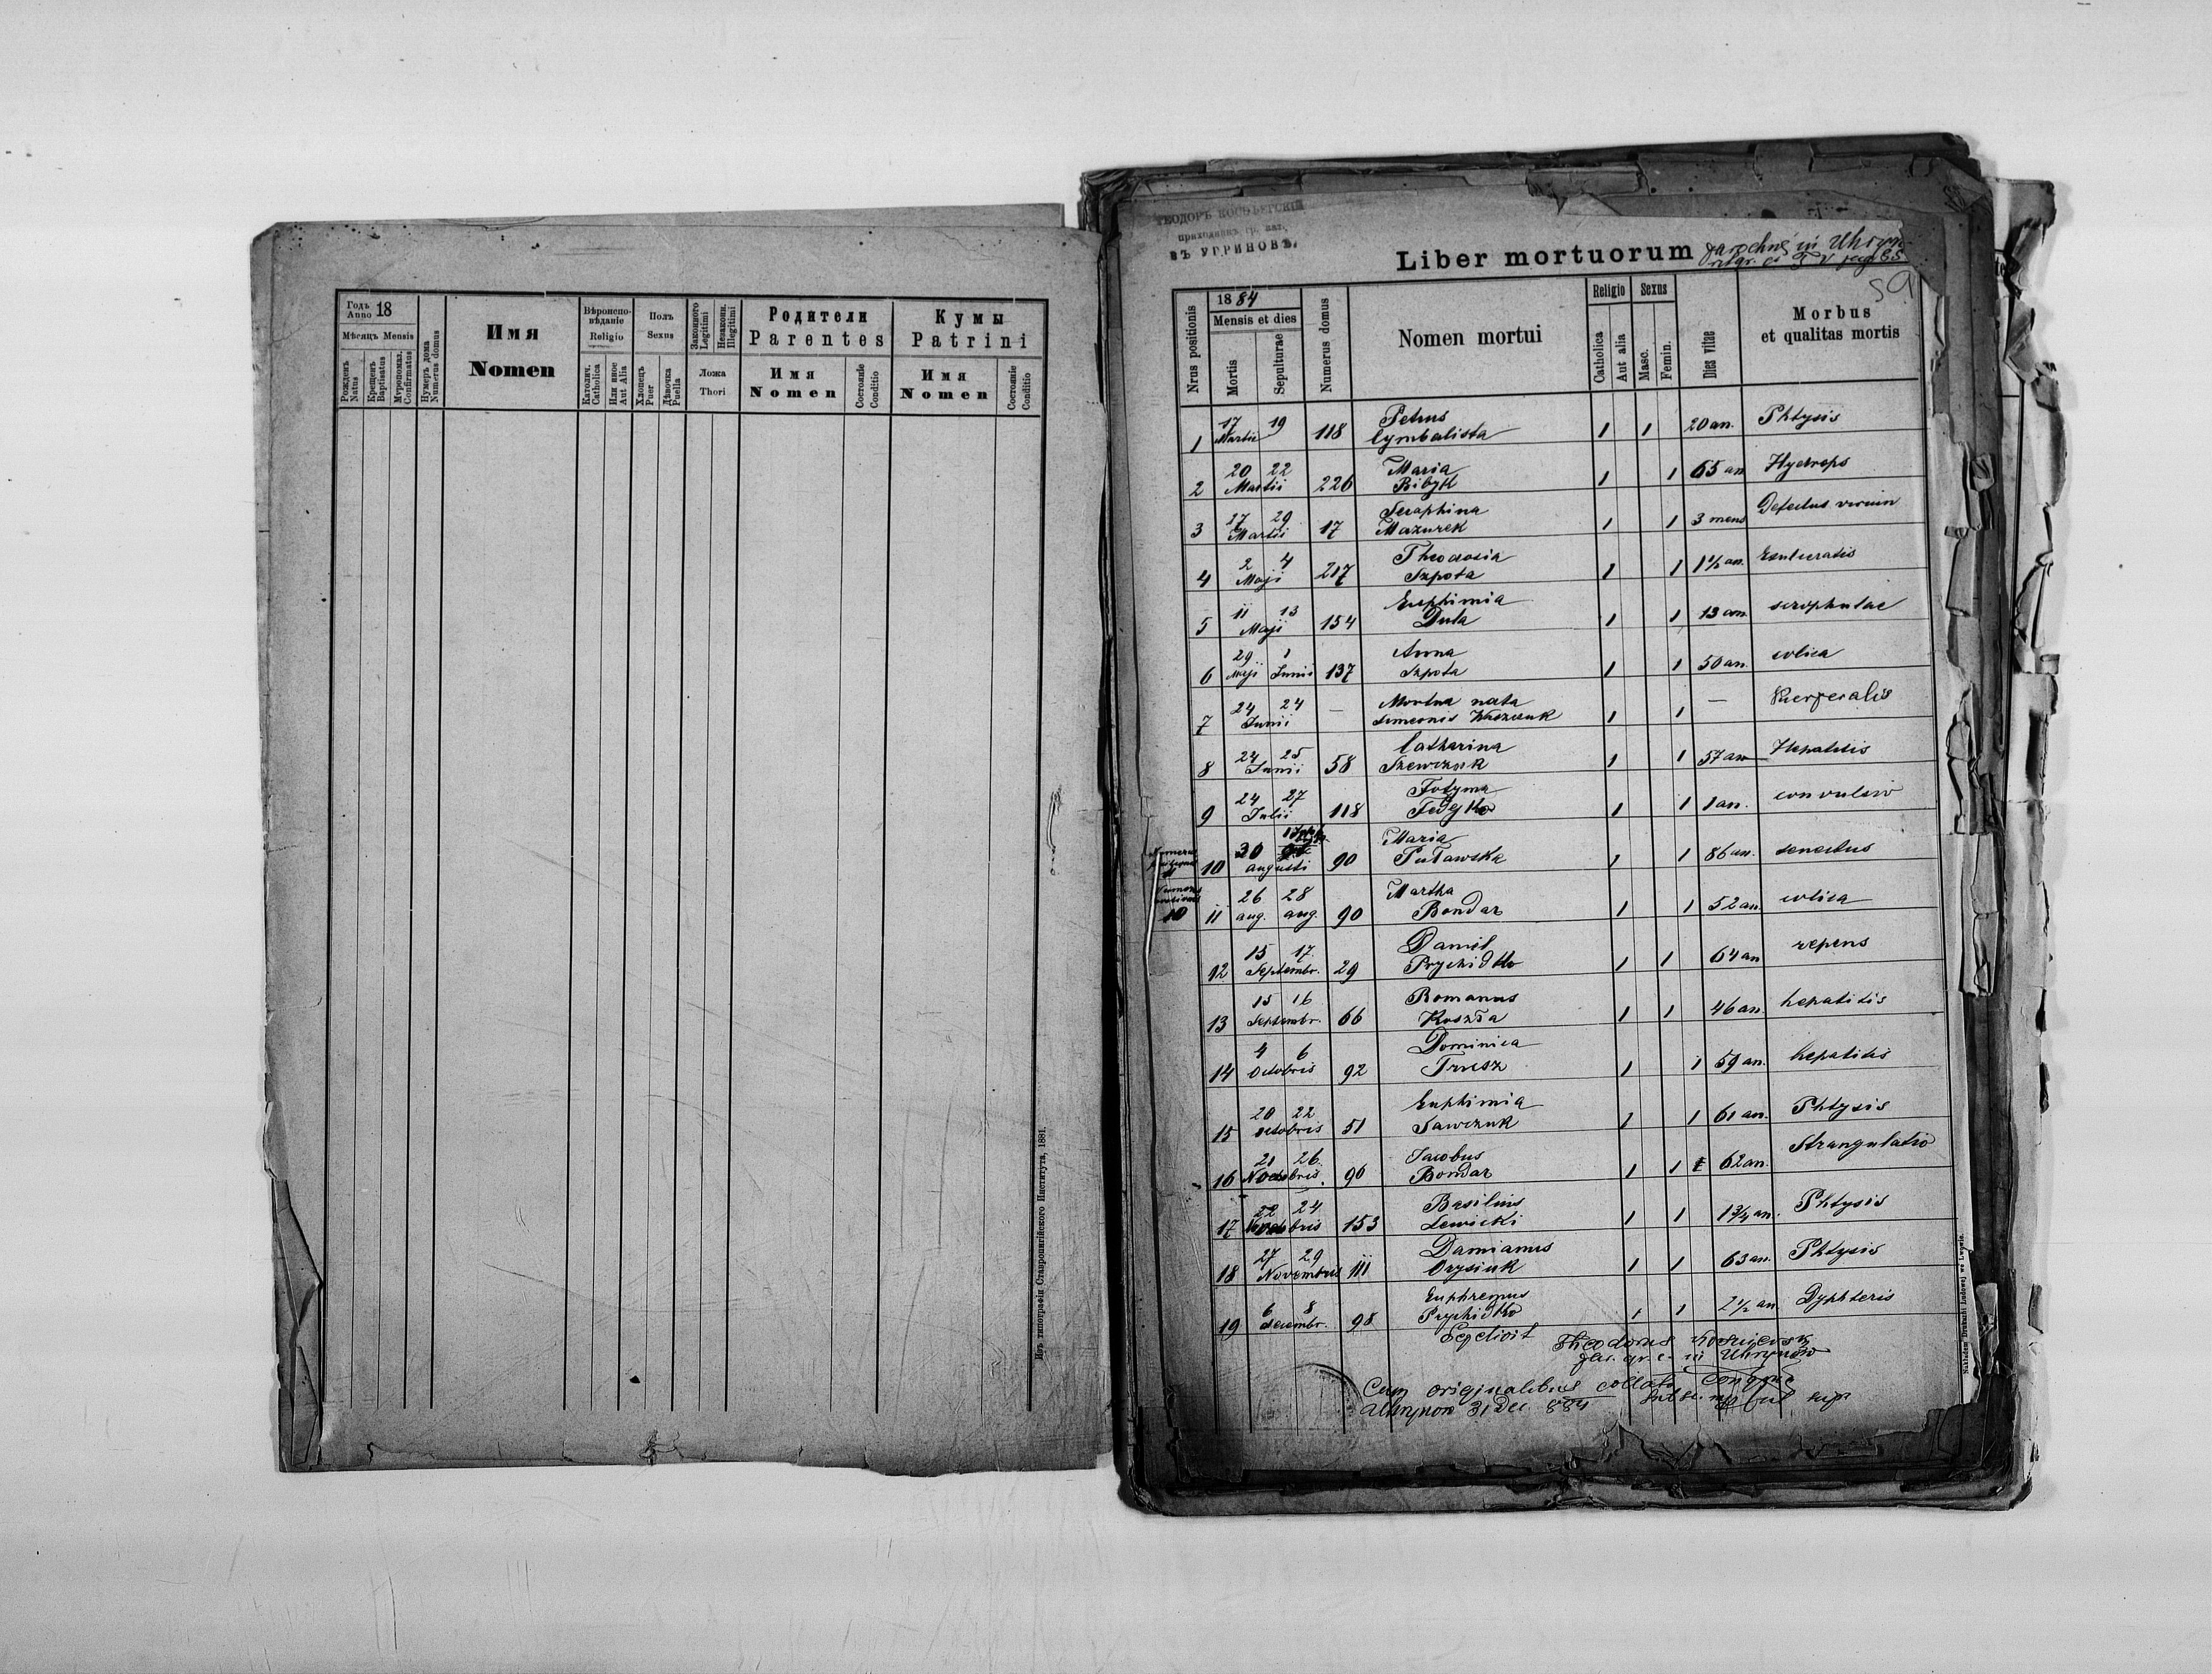 Годъ
Anno 18
Мѣсяцъ Mensis
Рожденъ
Natus
Крещенъ
Baptisatus
Муропомаз.
Confirmatus
Нумеръ дома
Numerus domus
Имя
Nomen
Вѣроиспо-
вѣданіе
Religio
Католич.
Catholica
Или иное
Aut Alia
Полъ
Sexus
Хлопецъ
Puer
Дѣвочка
Puella
Законного
Legitimi
Незаконн.
Illegitimi
Ложа
Thori
Родители
Parentes
Имя
Nomen
Состояніе
Conditio
Кумы
Patrini
Имя
Nomen
Состояніе
Conditio
Изъ типографіи Ставропигійского Института, 1881.
ТЕОДОРЪ
ВЪ УГРИНОВѢ
Liber mortuorum
59
Nrus positionis
1884
Mensis et dies
Mortis
Sepulturae
Numerus domus
Nomen mortui
Religio
Catholica
Aut alia
Sexus
Masc.
Femin.
Dies vitae
Morbus
et qualitas mortis
1 17 Martii 19 118 Petrus Cymbalista 1 1 20 an. Phtysis
2 20 22 Martii 226 Maria Bibyk 1 1 65 an Hydrops
3 27 29 Martii 17 Seraphina Mazurek 1 1 3 mens Defectus virium
4 2 4 Maji 217 Theodosia Szpota 1 1 1½ an.
5 11 13 Maji 154 Euphimia Duta 1 1 13 ann scrophulae
6 29 Maji 1 Junii 137 Anna Szpota 1 1 50 an. colica
7 24 24 Junii — Mortua nata Simeonis 1 1 — Puerperalis
8 24 25 Junii 58 Catharina Szewczuk 1 1 57 an Hepatitis
9 24 27 Julii 118 Fotyma Fedejko 1 1 1 an. convulsio
10 30 augusti 90 Maria Puławska 1 1 86 an. senectus
11 26 aug. 28 aug. 90 Martha Bondar 1 1 52 an. colica
12 15 17 Septembr. 29 Daniel Prychidko 1 1 64 an repens
13 15 16 Septembr. 66 Romanus Koszła 1 1 46 an. hepatitis
14 4 6 Octobris 92 Dominica Trusz 1 1 59 an. hepatitis
15 20 22 octobris 51 Euphimia Sawczuk 1 1 61 an. Phtysis
16 21 26 90 Jacobus Bondar 1 1 62 an. Strangulatio
17 22 24 153 Basilius Lewicki 1 1 1¾ an. Phtysis
18 27 29 Novembris 111 Damianus Orysiuk 1 1 63 an. Phtysis
19 6 8 decembr. 98 Euphremus Prychidko 1 1 2½ an. Dyphteris
Theodorus
gr. c. in Uhrynów
Cum originalibus collata
Uhrynow 31 Dec 884
Nakładem Drukarni Ludowej we Lwowie.